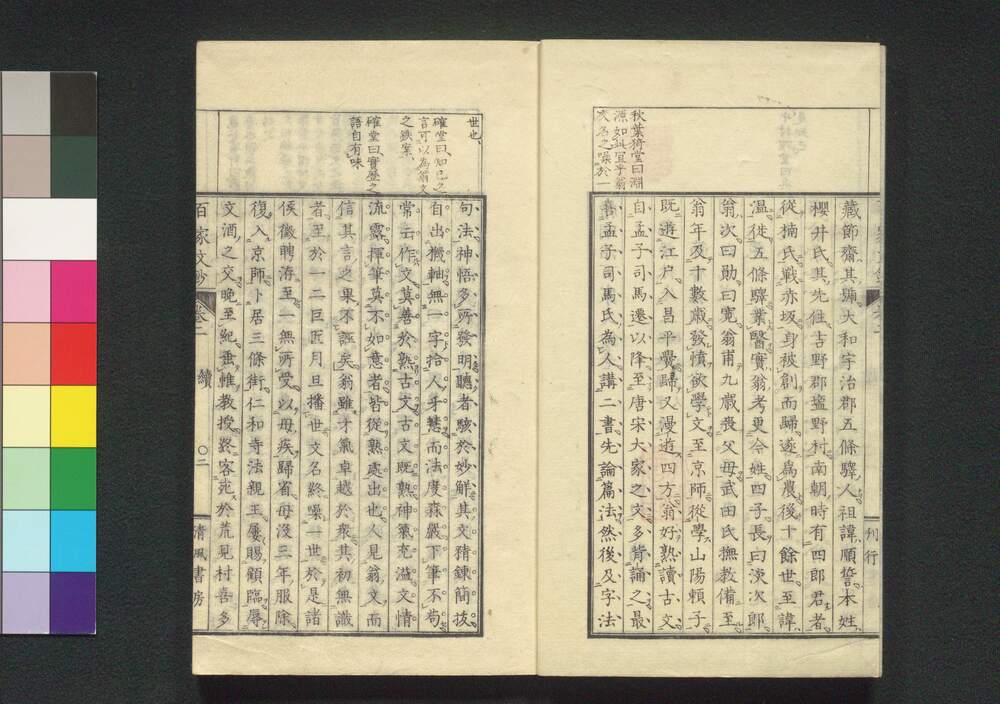 秋葉猗堂曰淵
源如此宜乎翁
文名之噪於一
藏節齋其號大和宇治郡五條驛人祖諱順誓本姓
櫻井氏其先住吉野郡𡌛野村南朝時有四郎君者
從楠氏戰赤坂身被創而歸遂爲農後十餘世至諱
温徙五條驛業醫實翁考更今姓四子長曰渙次郎
翁次曰勖曰寬翁甫九歲喪父母武田氏撫教備至
翁年及十數歲發憤欲學文至京師從學山陽賴子
既遊江戸入昌平黌歸又漫遊四方翁好熟讀古文
自孟子司馬遷以降至唐宋大家之文多背誦之最
喜孟子司馬氏爲人講二書先論篇法然後及字法
刊行
世也
確堂曰知己之
言可以為翁文
之鉄案
確堂曰實歷之
語自有味
句法神悟多所發明聽者駭於妙解其文精鍊簡拔
自出機軸無一字拾人牙慧而法度森嚴下筆不苟
常云作文莫善於熟古文古文既熟神氣充溢文情
流露揮筆莫不如意者皆從熟處出也人見翁文而
信其言之果不誣矣翁雖才氣卓越於衆其初無識
者至於一二巨匠月旦播世文名終噪一世於是諸
侯徵聘洊至一無所受以母疾歸省母沒三年服除
復入京師卜居三條街仁和寺法親王屢賜顧臨辱
文酒之交晚至紀垂帷教授終客死於荒見村喜多
百家文鈔 卷二 續 〇二 清風書房